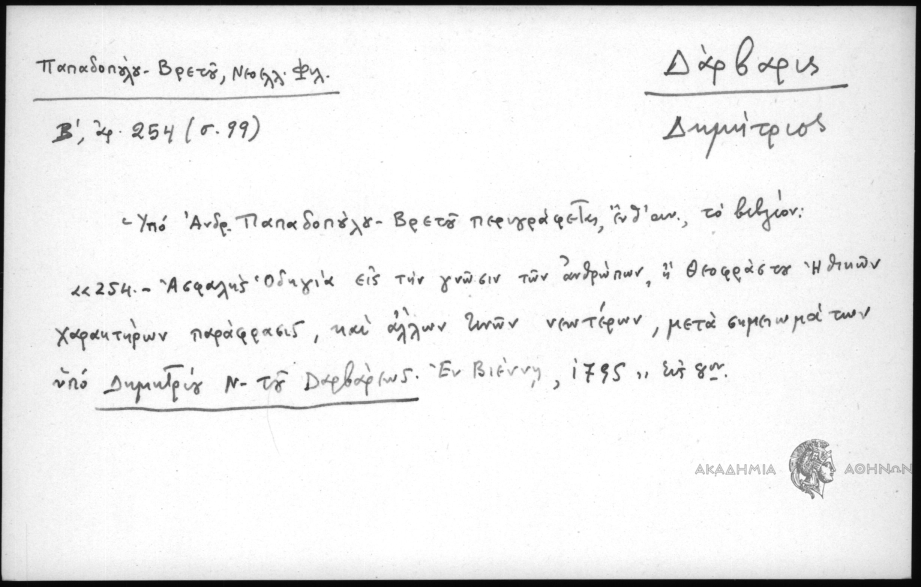 Παπαδοπούλου-Βρετοῦ, Νεοελλ. Φιλ.
Β', ἀρ. 254 (σ. 99)
Δάρβαρις
Δημήτριος
- Ὑπό Ἀνδρ. Παπαδοπούλου-Βρετοῦ περιγράφεται, ἔνθ' ἀν., τό βιβλίον:
«254.- Ἀσφαλής Ὁδηγία εἰς τήν γνῶσιν τῶν ἀνθρώπων, ἤ Θεοφράστου Ἠθικῶν
χαρακτήρων παράφρασις, καί ἄλλων τινῶν νεωτέρων, μετά σημειωμάτων
ὑπό Δημητρίου Ν- τοῦ Δαρβάρεως. Ἐν Βιέννῃ, 1795» εἰς 8ον.
ΑΚΑΔΗΜΙΑ ΑΘΗΝΩΝ